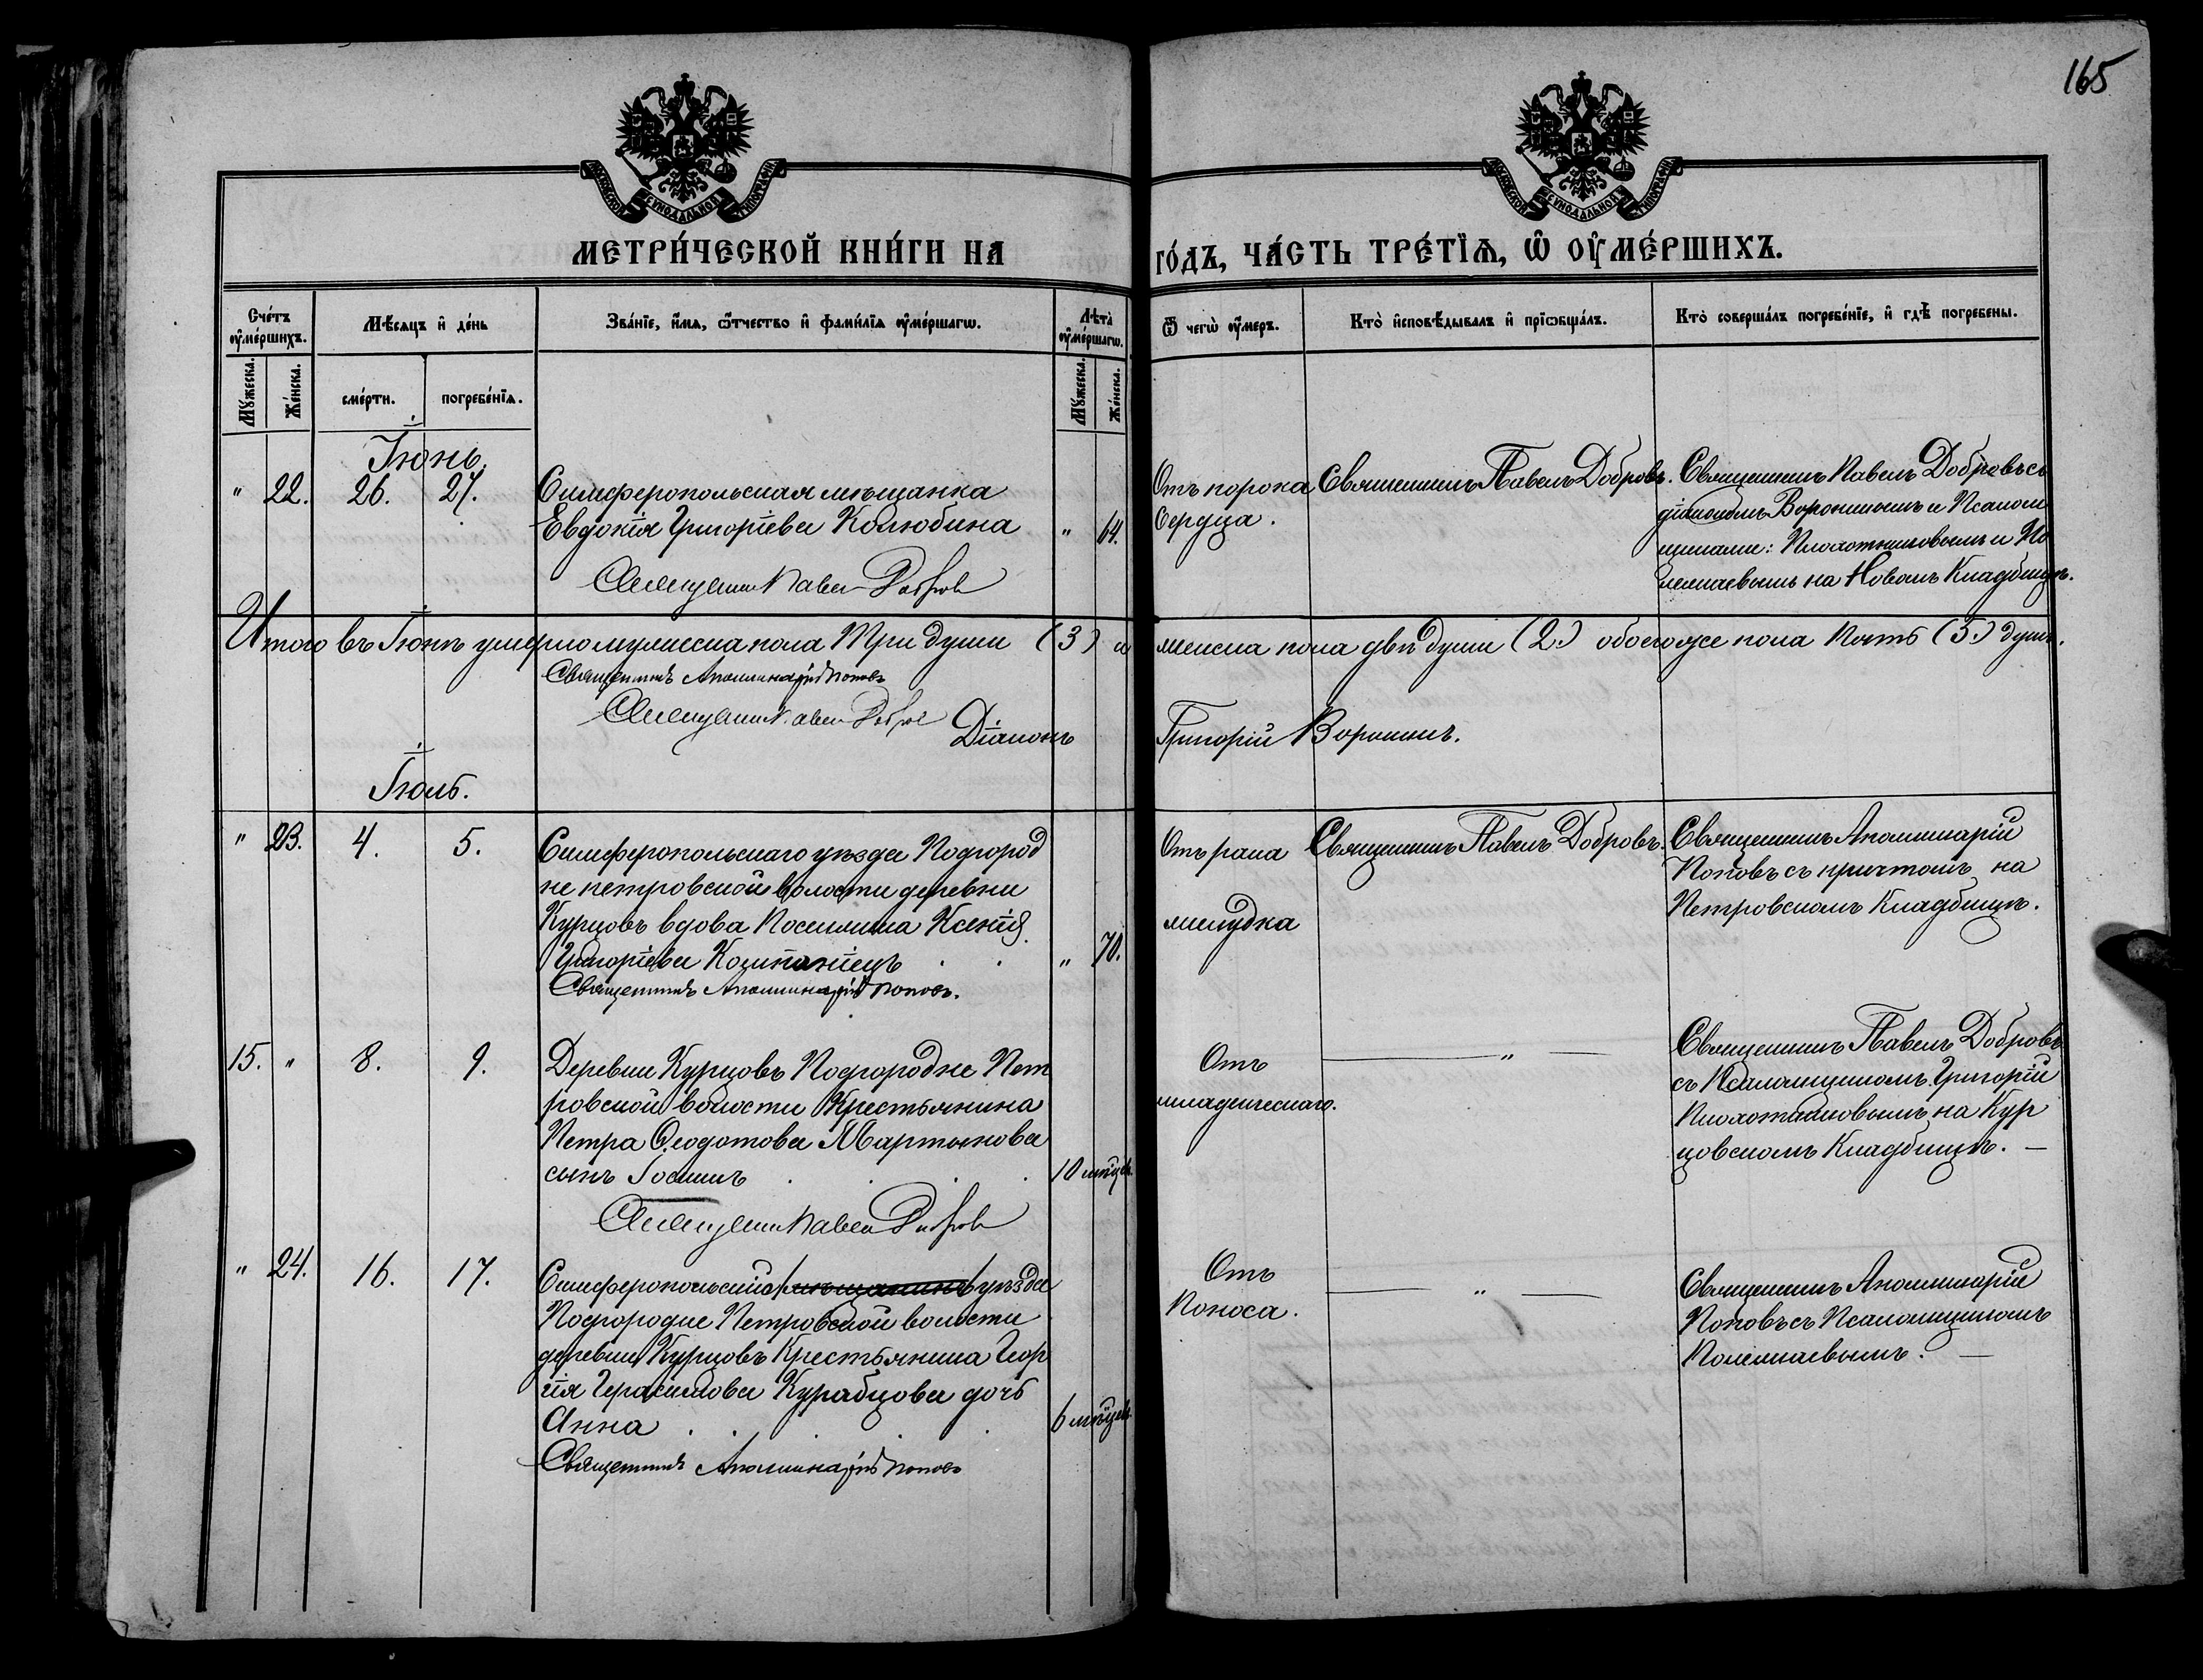 165
МОСКОВСКОЙ СѴНОДАЛЬНОЙ ТИПОГРАФІИ
МОСКОВСКОЙ СѴНОДАЛЬНОЙ ТИПОГРАФІИ
МЕТРИ́ЧЕСКОЙ КНИ́ГИ НА
ГО́ДЪ, ЧА́СТЬ ТРЕ́ТІѦ, Ѡ҆ ОУ҆МЕ́РШИХЪ.
Сче́тъ оу҆ме́ршихъ.
Мѣ́сяцъ и҆ де́нь
Зва́нїе, и҆́мѧ, ѻ҆́тчество и҆ фами́лїѧ оу҆ме́ршагѡ.
Лѣ́та оу҆ме́ршагѡ.
Ѿ чегѡ̀ оу҆́меръ.
Кто̀ и҆сповѣ́дывалъ и҆ прїѡбща́лъ.
Кто̀ соверша́лъ погребе́нїе, и҆ гдѣ̀ погребены.
Мꙋ́жеска.
Же́нска.
сме́рти.
погребе́нїѧ.
Мꙋ́жеска.
Же́нска.
Іюнь.
" 22. 26. 27.
Симферопольская мѣщанка
Евдокія Григоріева Колюбина " 64.
Священникъ Павелъ Добровъ
Отъ порока
Сердца.
Священникъ Павелъ Добровъ.
Священникъ Павелъ Добровъ съ
діакономъ Воронинымъ и Псалом
щиками: Плохотниковымъ и По
лемаевымъ на Новомъ Кладбищѣ.
Итого въ Іюнѣ умерло мужеска пола Три души (3) и женска пола двѣ души (2) обоего же пола Пять (5) душъ.
Священникъ Аполлинарій Поповъ
Священникъ Павелъ Добровъ
Діаконъ Григорій Воронинъ.
Іюль.
" 23. 4. 5.
Симферопольскаго уѣзда Подгород
не петровской волости деревни
Курцовъ вдова Поселянка Ксенія
Григоріева " 70.
Священникъ Аполлинарій Поповъ.
Отъ рака
желудка
Священникъ Павелъ Добровъ.
Священникъ Аполлинарій
Поповъ съ причтомъ на
Петровскомъ Кладбищѣ.
15. " 8. 9.
Деревни Курцовъ Подгородне Пет
ровской волости Крестьянина
Петра Ѳеодотова Мартынова
сынъ Іоаннъ 10 мѣсяц.
Священникъ Павелъ Добровъ
Отъ
младенческаго.
"
Священникъ Павелъ Добровъ
съ Псаломщикомъ Григорій
Плохотниковымъ на Кур
цовскомъ Кладбищѣ. —
" 24. 16. 17.
Симферопольскій мѣщанинъ уѣзда
Подгородне Петровской волости
деревни Курцовъ Крестьянина Геор
гія Герасимова Курабцова дочь
Анна 6 мѣсяц.
Священникъ Аполлинарій Поповъ
Отъ
Поноса.
"
Священникъ Аполлинарій
Поповъ съ Псаломщикомъ
Полемаевымъ. —